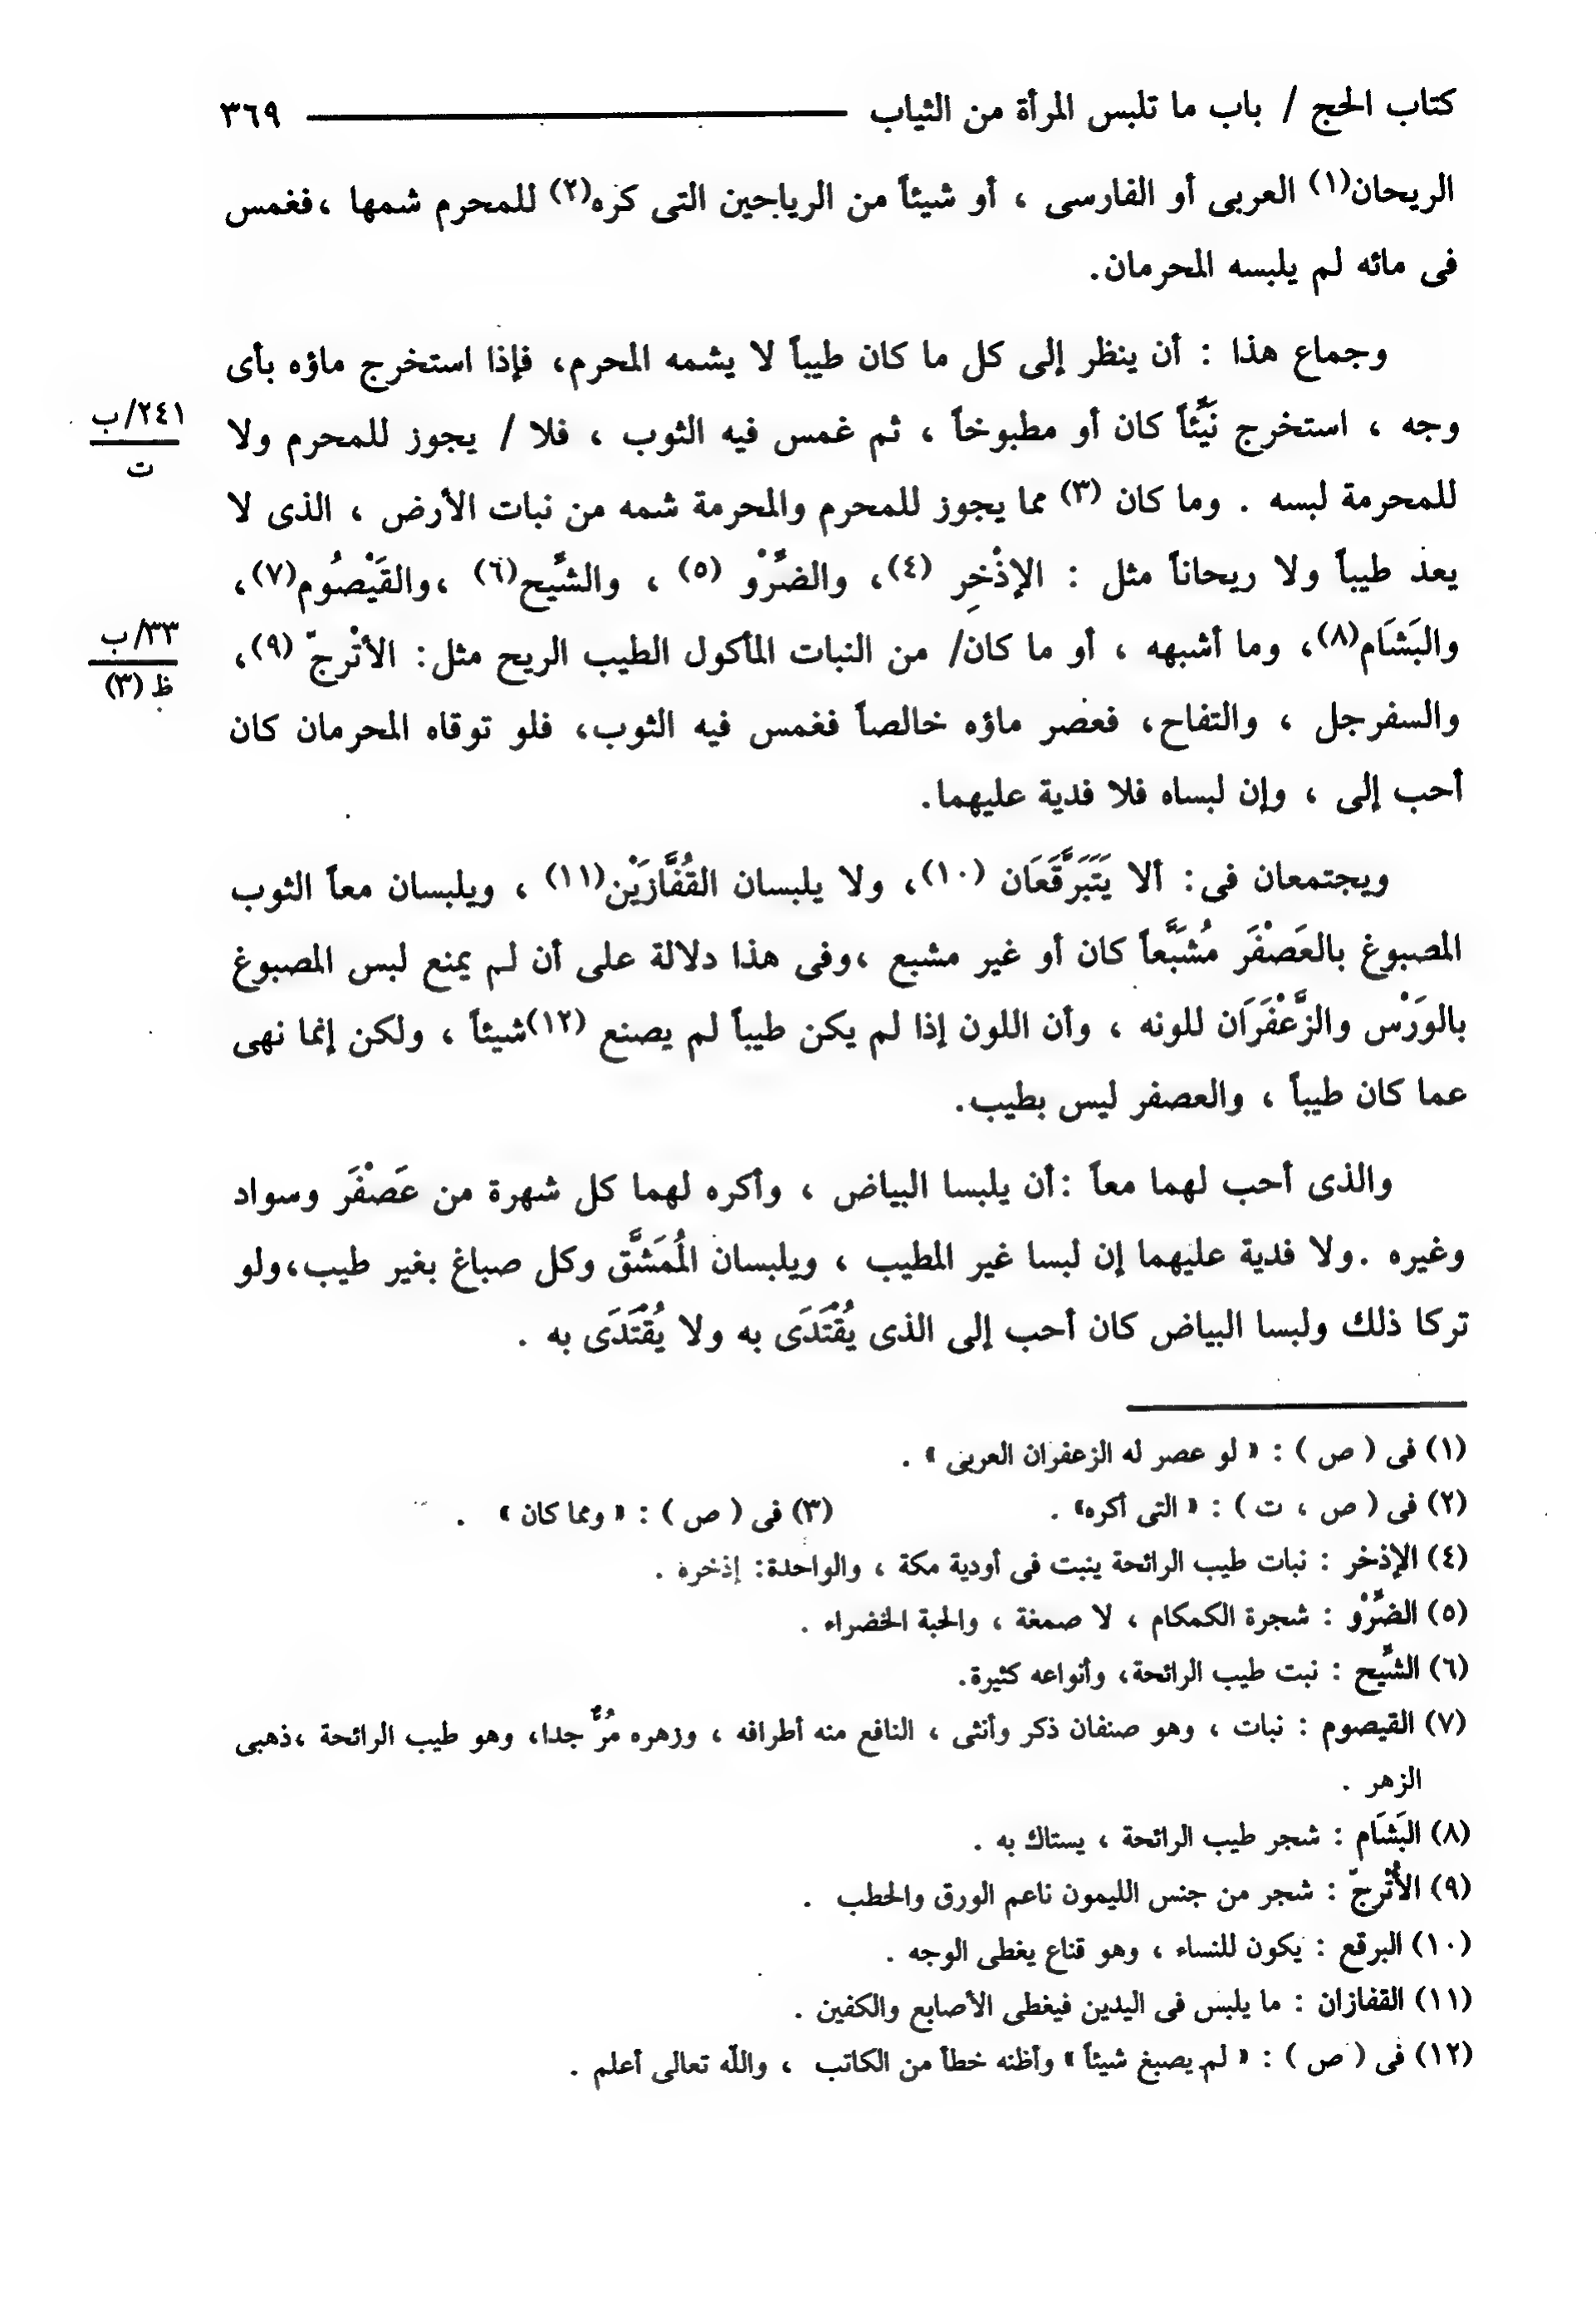 كتاب الحج / باب ما تلبس المرأة من الثياب ٣٦٩
الريحان(١) العربى أو الفارسى ، أو شيئاً من الرياحين التى كره(٢) للمحرم شمها ،فغمس
فى مائه لم يلبسه المحرمان.
وجماع هذا : أن ينظر إلى كل ما كان طيباً لا يشمه المحرم، فإذا استخرج ماؤه بأى
وجه ، استخرج نَيِّئاً كان أو مطبوخاً ، ثم غمس فيه الثوب ، فلا / يجوز للمحرم ولا
٢٤١/ب
ت
للمحرمة لبسه . وما كان (٣) مما يجوز للمحرم والمحرمة شمه من نبات الأرض ، الذى لا
يعد طيباً ولا ريحاناً مثل : الإذْخِر (٤)، والضِّرْو (٥) ، والشِّيح(٦) ،والقَيْصُوم(٧)،
والبَشَام(٨)، وما أشبهه ، أو ما كان/ من النبات المأكول الطيب الريح مثل: الأتْرجّ (٩)،
٣٣/ب
ظ (٣)
والسفرجل ، والتفاح، فعصر ماؤه خالصاً فغمس فيه الثوب، فلو توقاه المحرمان كان
أحب إلى ، وإن لبساه فلا فدية عليهما.
ويجتمعان فى: ألا يَتَبَرَقَّعَان (١٠)، ولا يلبسان القُفَّازَيْن(١١) ، ويلبسان معاً الثوب
المصبوغ بالعَصْفَر مُشَبَّعاً كان أو غير مشبع ،وفى هذا دلالة على أن لم يمنع لبس المصبوغ
بالوَرْس والزَّعْفَرَان للونه ، وأن اللون إذا لم يكن طيباً لم يصنع (١٢)شيئاً ، ولكن إنما نهى
عما كان طيباً ، والعصفر ليس بطيب.
والذى أحب لهما معاً :أن يلبسا البياض ، وأكره لهما كل شهرة من عَصْفَر وسواد
وغيره .ولا فدية عليهما إن لبسا غير المطيب ، ويلبسان المُمَشَّق وكل صباغ بغير طيب،ولو
تركا ذلك ولبسا البياض كان أحب إلى الذى يُقْتَدَى به ولا يُقْتَدَى به .
(١) فى ( ص ) : « لو عصر له الزعفران العربى » .
(٢) فى ( ص ، ت ) : « التى أكره» . (٣) فى ( ص ) : « ومما كان » .
(٤) الإذخر : نبات طيب الرائحة ينبت فى أودية مكة ، والواحدة: إذخره .
(٥) الضِّرْو : شجرة الكمكام ، لا صمغة ، والحبة الخضراء .
(٦) الشِّيح : نبت طيب الرائحة، وأنواعه كثيرة.
(٧) القيصوم : نبات ، وهو صنفان ذكر وأنثى ، النافع منه أطرافه ، وزهره مُرٌّ جدا، وهو طيب الرائحة ،ذهبى
الزهر .
(٨) البَشَام : شجر طيب الرائحة ، يستاك به .
(٩) الأُتْرجّ : شجر من جنس الليمون ناعم الورق والحطب .
(١٠) البرقع : يكون للنساء ، وهو قناع يغطى الوجه .
(١١) القفازان : ما يلبس فى اليدين فيغطى الأصابع والكفين .
(١٢) فى ( ص ) : « لم يصبغ شيئاً » وأظنه خطأ من الكاتب ، واللّه تعالى أعلم .